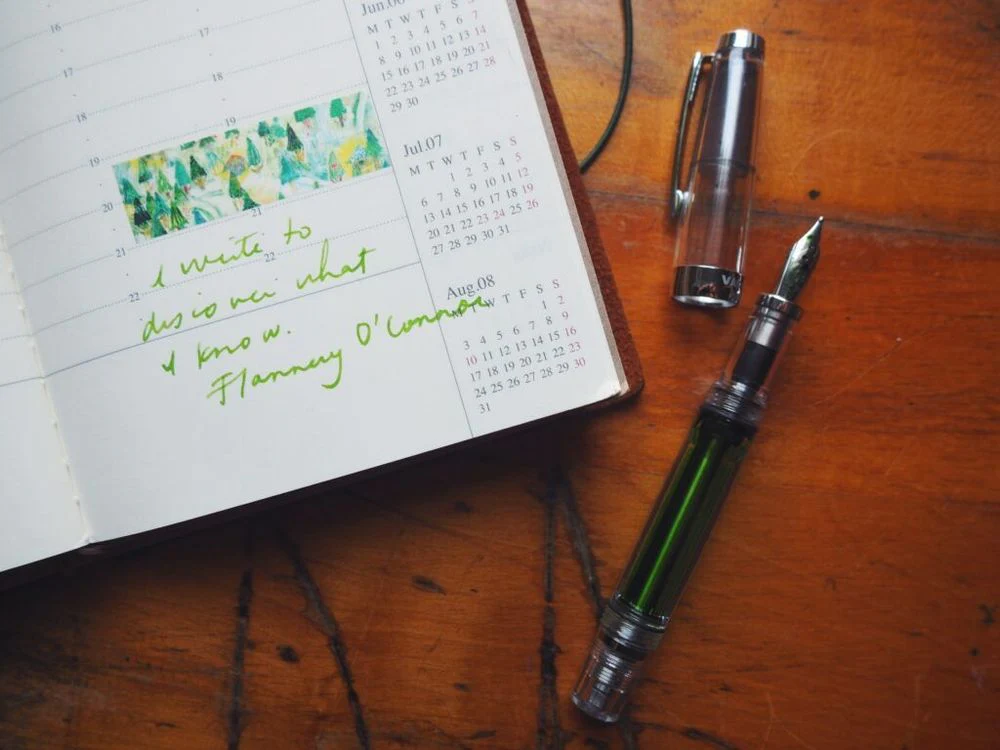 16
17
18
19
20
21
22
17
18
19
21
22
I write to
discover what
I know.
Flannery O'Connor
Jun.06
M T W T F S
1 2 3 4 5 6 7
8 9 10 11 12 13 14
15 16 17 18 19 20 21
22 23 24 25 26 27 28
29 30
Jul.07
M T W T F S S
1 2 3 4 5
6 7 8 9 10 11 12
13 14 15 16 17 18 19
20 21 22 23 24 25 26
27 28 29 30 31
Aug.08
M T W T F S S
1 2
3 4 5 6 7 8 9
10 11 12 13 14 15 16
17 18 19 20 21 22 23
24 25 26 27 28 29 30
31